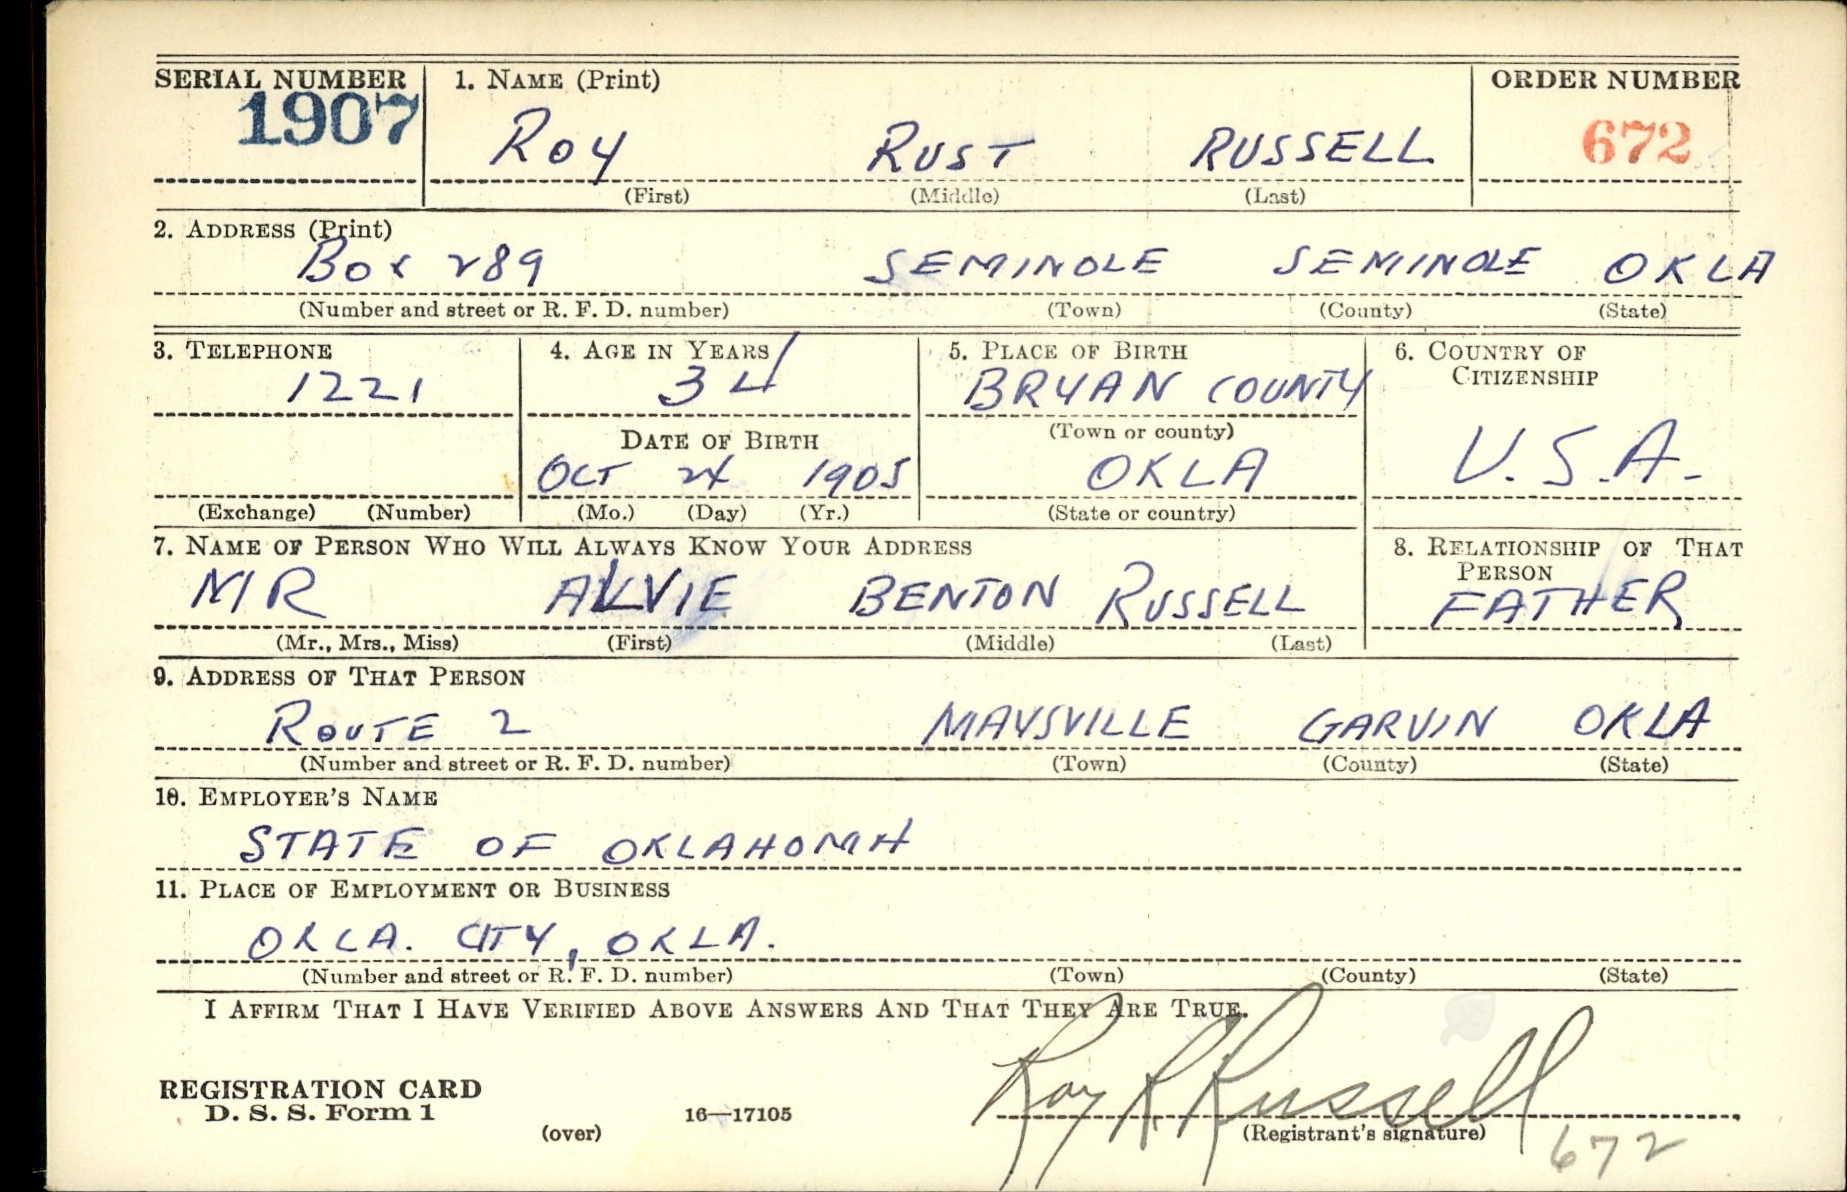 SERIAL NUMBER 1. NAME (Print) ORDER NUMBER
1907 ROY RUST RUSSELL 672
(First) (Middle) (Last)
2. ADDRESS (Print)
BOX 289 SEMINOLE SEMINOLE OKLA
(Number and street or R. F. D. number) (Town) (County) (State)
3. TELEPHONE 4. AGE IN YEARS 5. PLACE OF BIRTH 6. COUNTRY OF CITIZENSHIP
1221 34 BRYAN COUNTY
DATE OF BIRTH (Town or county) U.S.A.
OCT 24 1905 OKLA
(Exchange) (Number) (Mo.) (Day) (Yr.) (State or country)
7. NAME OF PERSON WHO WILL ALWAYS KNOW YOUR ADDRESS 8. RELATIONSHIP OF THAT PERSON
MR ALVIE BENTON RUSSELL FATHER
(Mr., Mrs., Miss) (First) (Middle) (Last)
9. ADDRESS OF THAT PERSON
ROUTE 2 MAYSVILLE GARVIN OKLA
(Number and street or R. F. D. number) (Town) (County) (State)
10. EMPLOYER'S NAME
STATE OF OKLAHOMA
11. PLACE OF EMPLOYMENT OR BUSINESS
OKLA. CITY, OKLA.
(Number and street or R. F. D. number) (Town) (County) (State)
I AFFIRM THAT I HAVE VERIFIED ABOVE ANSWERS AND THAT THEY ARE TRUE.
REGISTRATION CARD Roy R Russell
D. S. S. Form 1 16—17105
(over) (Registrant's signature) 672